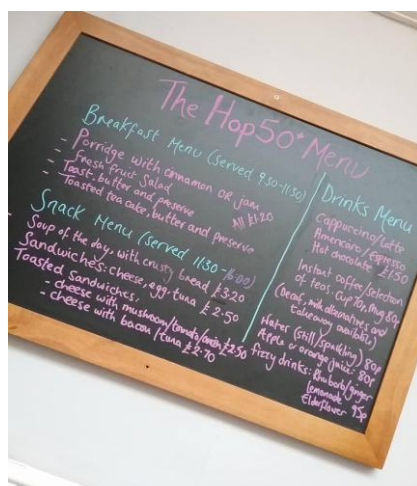 The Hop50+ Menu
Breakfast Menu (served 9:30-11:30)
- Porridge with cinnamon OR jam
- Fresh fruit Salad
- Toast, butter and preserve
- Toasted tea cake, butter and preserve
All £1.20
Snack Menu (served 11:30-
Soup of the day, with crusty bread £3.20
Sandwiches: cheese, egg, tuna £2.50
Toasted Sandwiches.
- cheese with mushroom/tomato/onion £2.50
- cheese with bacon/tuna £2.70
Drinks Menu
Cappuccino/Latte
Americano/Espresso
Hot chocolate £1.50
Instant coffee/selection
of teas. Cup 70p, Mug 80p
(Decaf, milk alternatives and
takeaway available)
Water (still/sparkling) 80p
Apple or orange juice: 80p
fizzy drinks: Rhubarb/ginger
Lemonade
Elderflower 95p